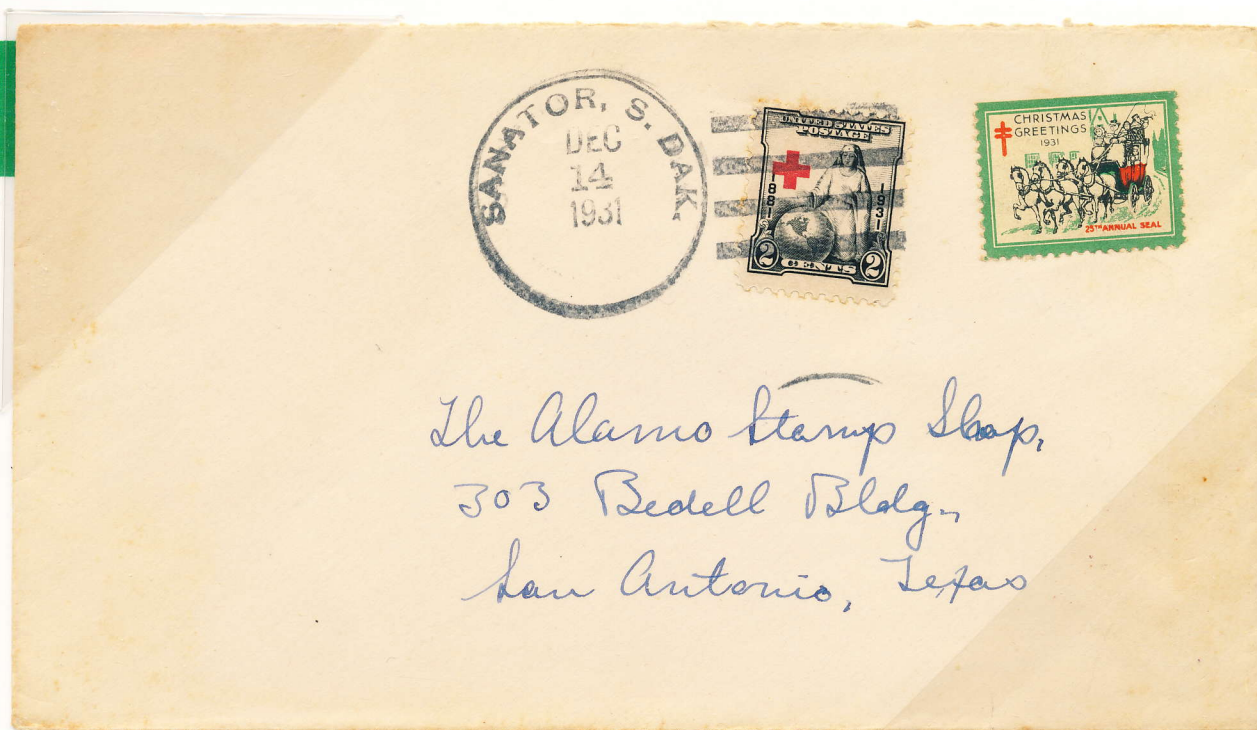 SANATOR, S. DAK.
DEC
14
1931
UNITED STATES
POSTAGE
1881
1931
2 CENTS 2
CHRISTMAS
GREETINGS
1931
25TH ANNUAL SEAL
The Alamo Stamp Shop,
303 Bedell Bldg.,
San Antonio, Texas